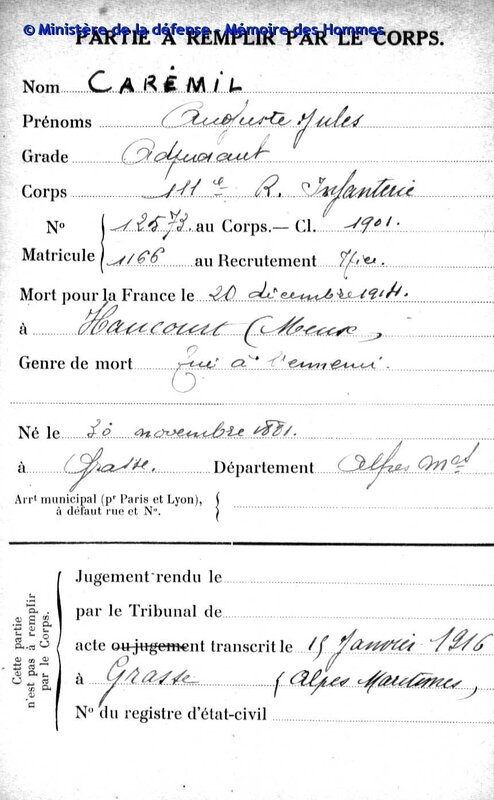 © Ministère de la défense - Mémoire des Hommes
PARTIE À REMPLIR PAR LE CORPS.
Nom CARÉMIL
Prénoms Auguste Jules
Grade Adjudant
Corps 111e R. Infanterie
N° 12573 au Corps. — Cl. 1901.
Matricule 1166 au Recrutement Nice.
Mort pour la France le 20 décembre 1914.
à Haucourt (Meuse)
Genre de mort Tué à l'ennemi.
Né le 30 novembre 1881.
à Grasse. Département Alpes Mes
Arrt municipal (pr Paris et Lyon),
à défaut rue et N°.
Cette partie
n'est pas à remplir
par le Corps.
Jugement rendu le
par le Tribunal de
acte ou jugement transcrit le 15 Janvier 1916
à Grasse (Alpes Maritimes,
N° du registre d'état-civil